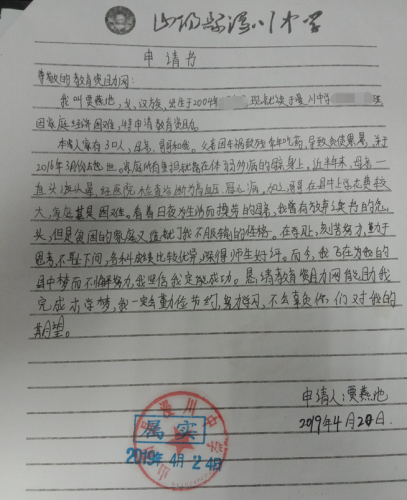 山阳县漫川中学
申请书
尊敬的教育资助网：
我叫贾燕池，女，汉族，出生于2004年 现就读于漫川中学
因家庭经济困难，特申请教育资助。
本人家有3口人，母亲、哥哥和我。父亲因车祸致残常年吃药，导致负债累累，并于
2016年3月份去世。家庭所有重担就落在体弱多病的母亲身上，近半年来，母亲一
直头疼头晕，经医院检查诊断为高血压、冠心病，加上哥哥在县中上学花费较
大，家庭甚是困难。看着日夜为生活而操劳的母亲，我曾有放弃读书的念
头，但是贫困的家庭又造就了我不服输的性格。在学习上，刻苦努力，勤于
思考，不耻下问，各科成绩比较优异，深得师生好评。而今，我正在为我的
县中梦而不懈努力，我坚信我定能成功。恳请教育资助网能助我
完成求学梦，我一定会勤俭节约，努力学习，不会辜负你们对我的
期望。
申请人：贾燕池
2019年4月20日.
属实
2019年 4月 24日